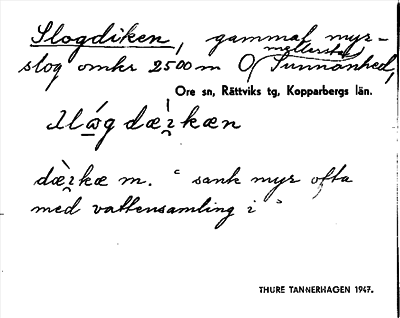 Slogdiken, gammal myr-
slog omkr 2500 m O mellersta Sunnanhed,
Ore sn, Rättviks tg, Kopparbergs län.
dæ̀ikæ m. "sank myr ofta
med vattensamling i"
THURE TANNERHAGEN 1947.